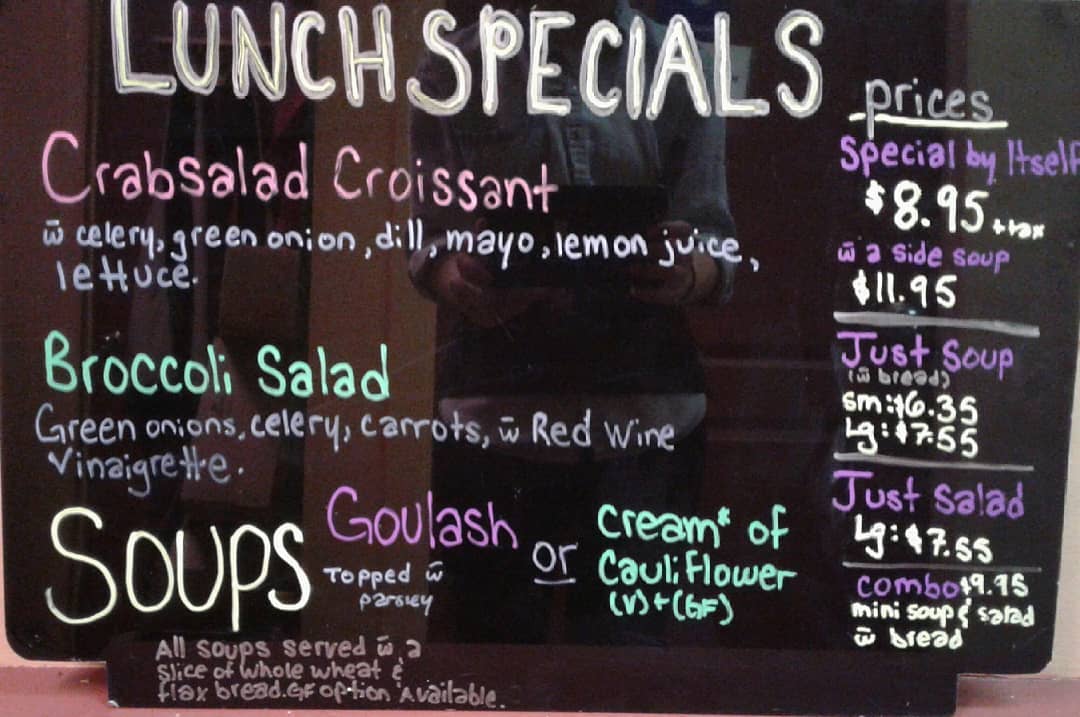 LUNCH SPECIALS
Crabsalad Croissant
w̄ celery, green onion, dill, mayo, lemon juice,
lettuce.
Broccoli Salad
Green onions, celery, carrots, w̄ Red Wine
Vinaigrette.
SOUPS
Goulash
Topped w̄
parsley
or
Cream* of
Cauliflower
(V) + (GF)
All soups served w̄ a
slice of whole wheat &
flax bread. GF option Available.
prices
Special by Itself
$8.95 + tax
w̄ a side soup
$11.95
Just Soup
(w̄ bread)
sm: $6.35
Lg: $7.55
Just Salad
Lg: $7.55
combo $9.95
mini soup & salad
w̄ bread